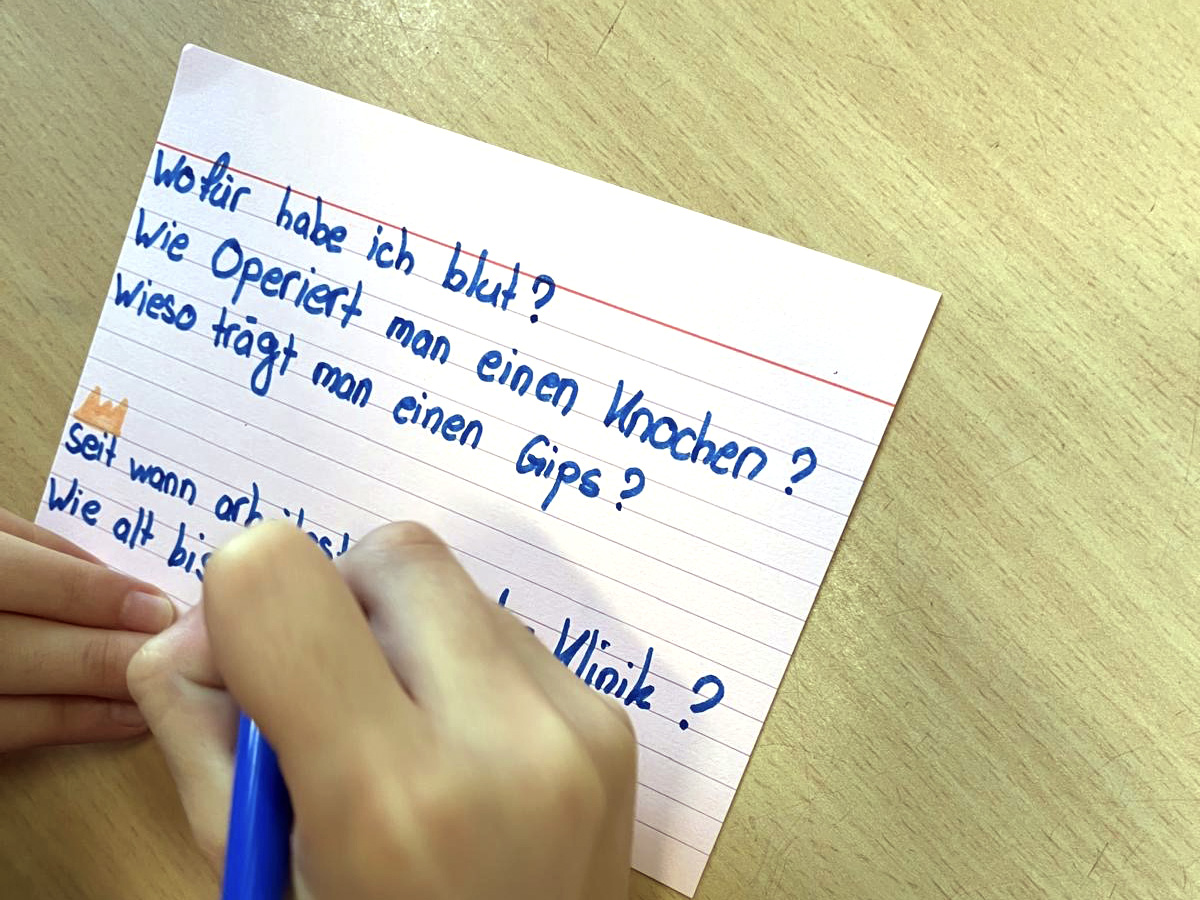 Wofür habe ich blut?
Wie Operiert man einen Knochen?
Wieso trägt man einen Gips?
seit wann Klinik?
Wie alt